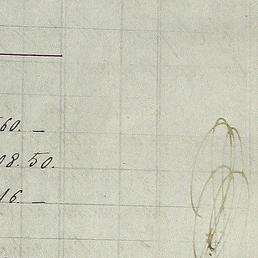 60. —
08.50.
16. —